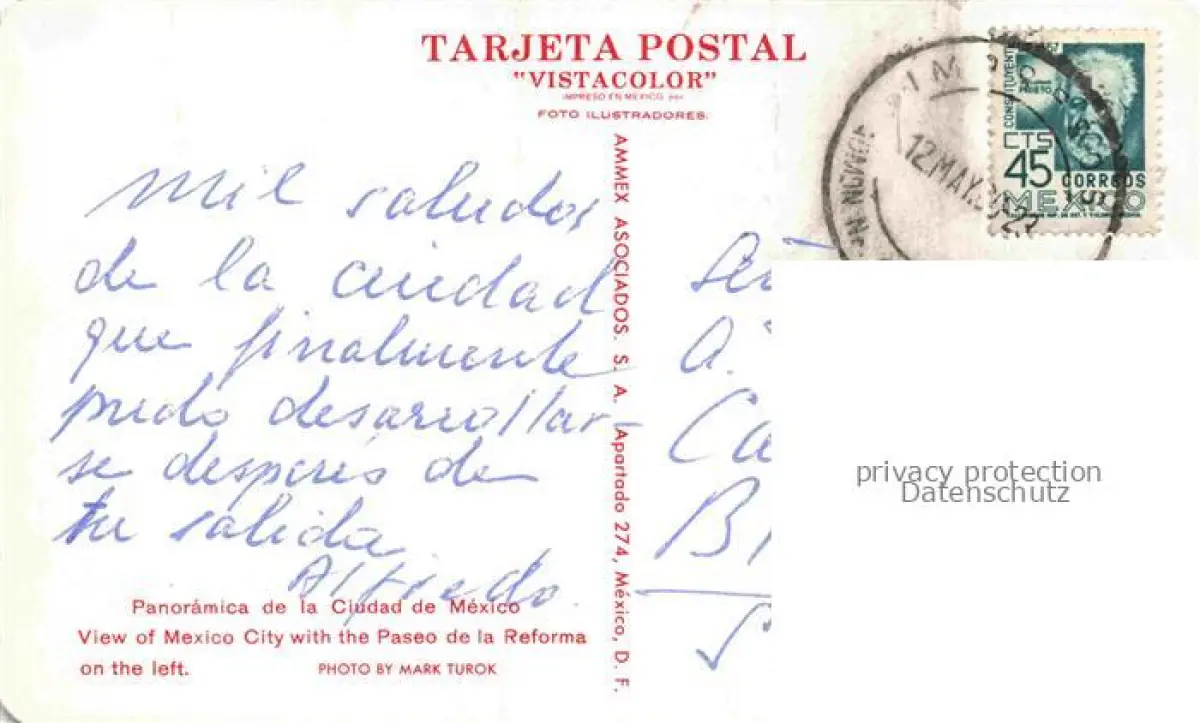 TARJETA POSTAL
"VISTACOLOR"
IMPRESO EN MEXICO
FOTO ILUSTRADORES
CONSTITUYENTE
PRIETO
CTS
45
CORREOS
MEXICO
12 MAY
mil saludos
de la ciudad
que finalmente
pudo desarrollar-
se despues de
tu salida
Alfredo.
AMMEX ASOCIADOS. S. A. Apartado 274, México, D. F.
A.
Ca
B
privacy protection
Datenschutz
Panorámica de la Ciudad de México
View of Mexico City with the Paseo de la Reforma
on the left. PHOTO BY MARK TUROK